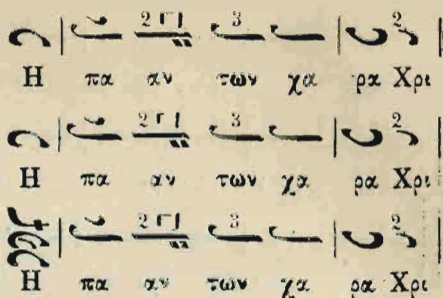 2 3 2
Η πα αν των χα ρα Χρι
2 3 2
Η πα αν των χα ρα Χρι
2 3 2
Η πα αν των χα ρα Χρι